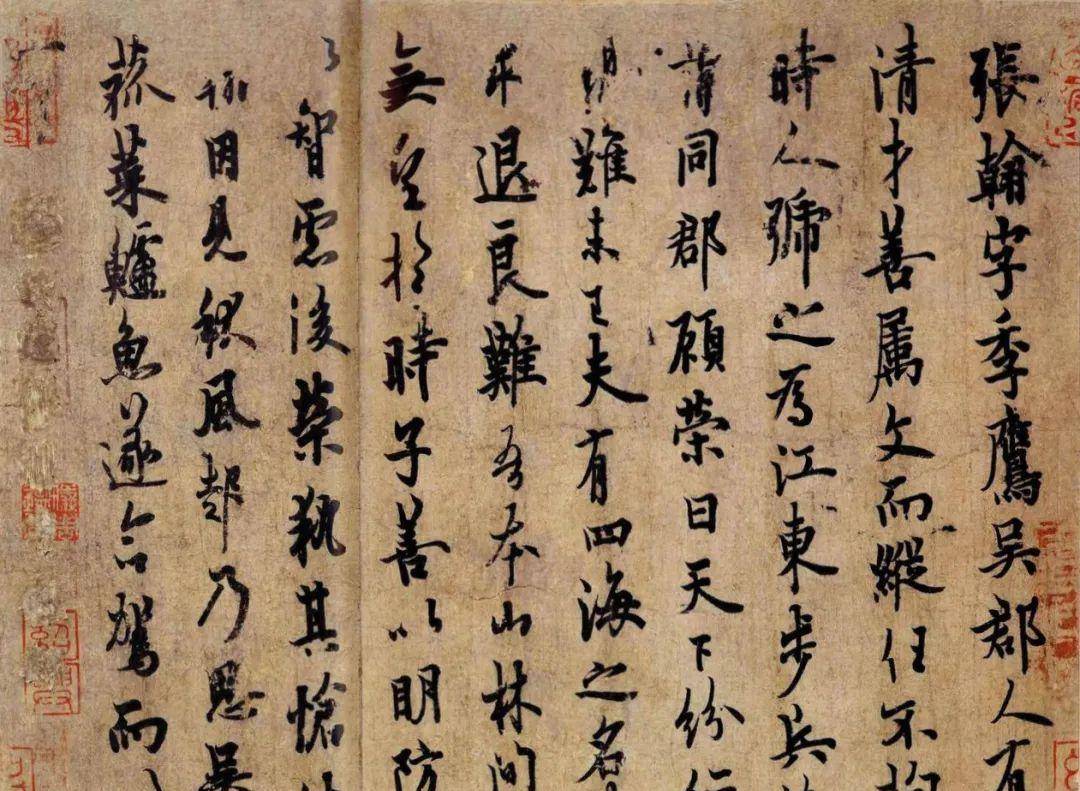 張翰字季鷹吳郡人有
清才善属文而縱任不拘
時人號之為江東步兵
同郡顧榮曰天下紛
難未已夫有四海之名
求退良難吾本山林間
無望於時子善以明防
智慮後榮執其愴
因見秋風起乃思吳
菰菜鱸魚遂命駕而